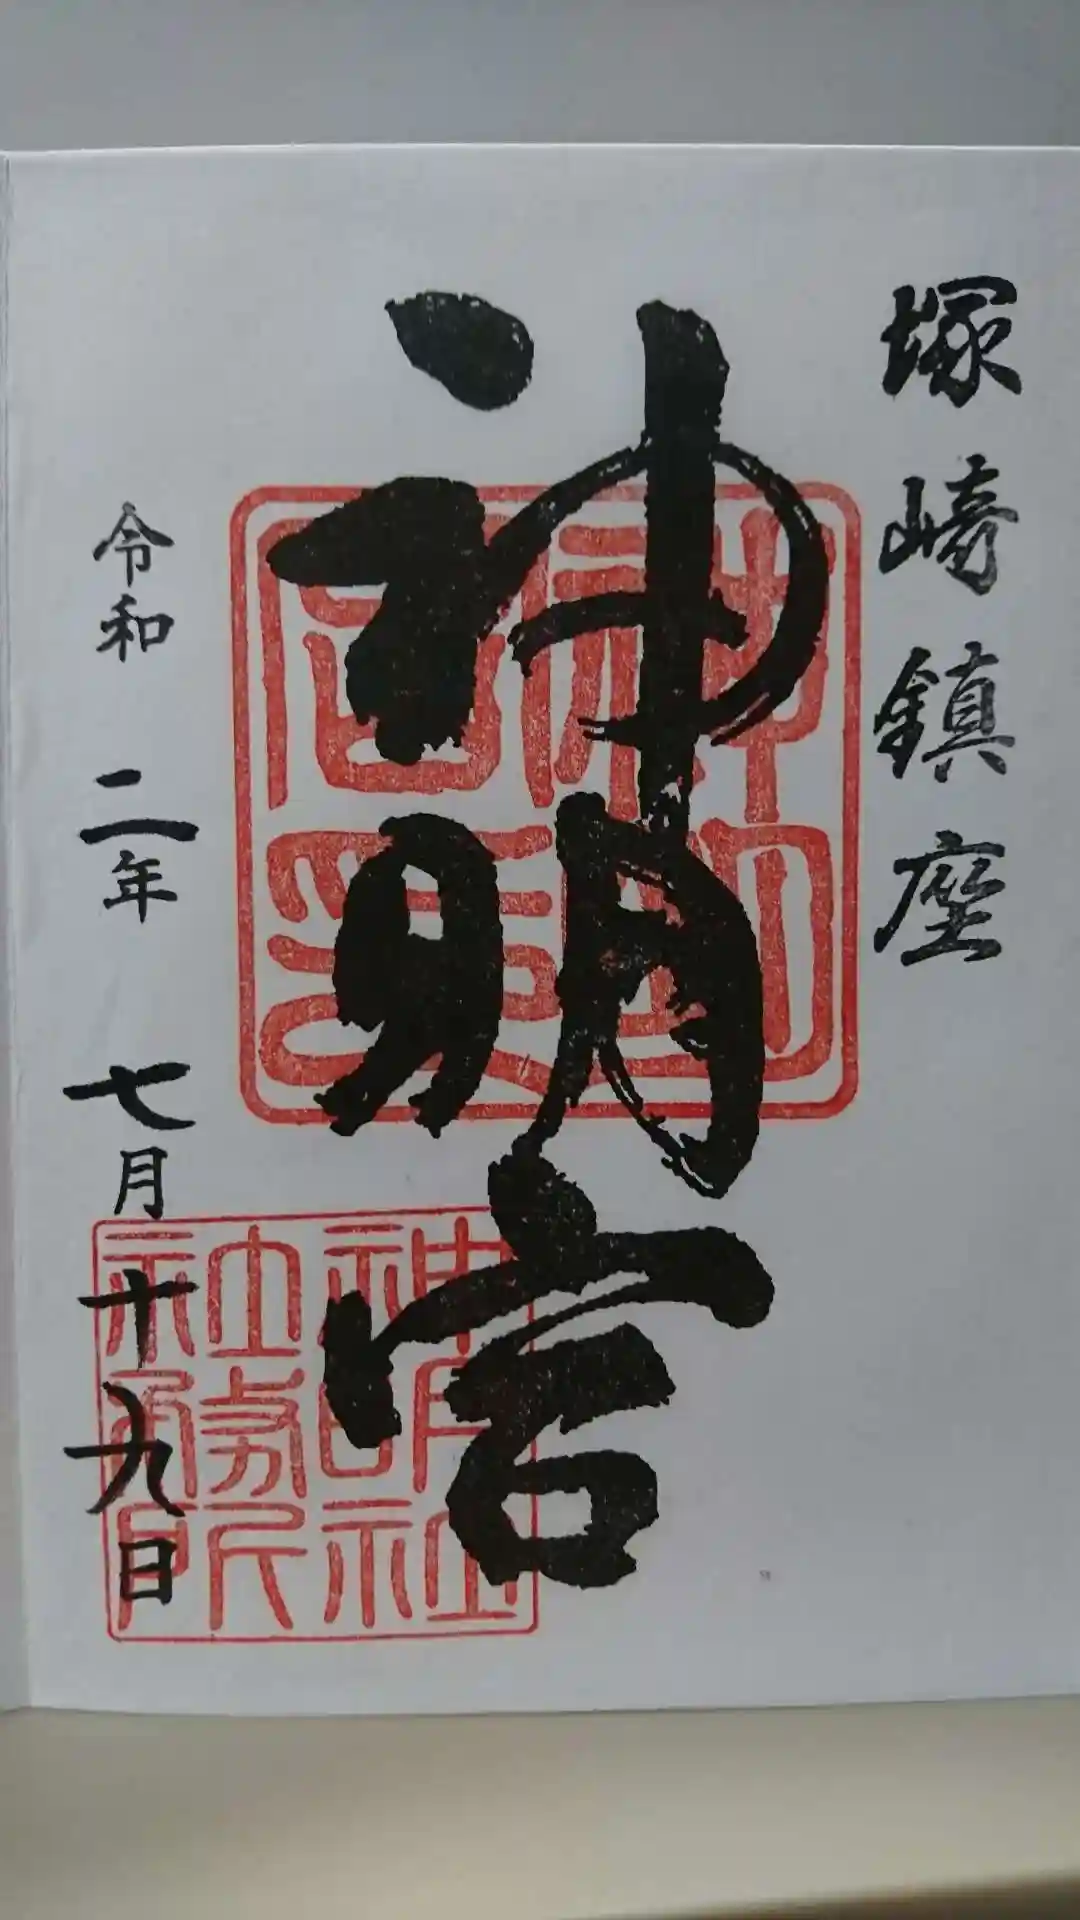 塚﨑鎮座
神明宮
令和二年七月十九日
神明宮印
神明社
社務所